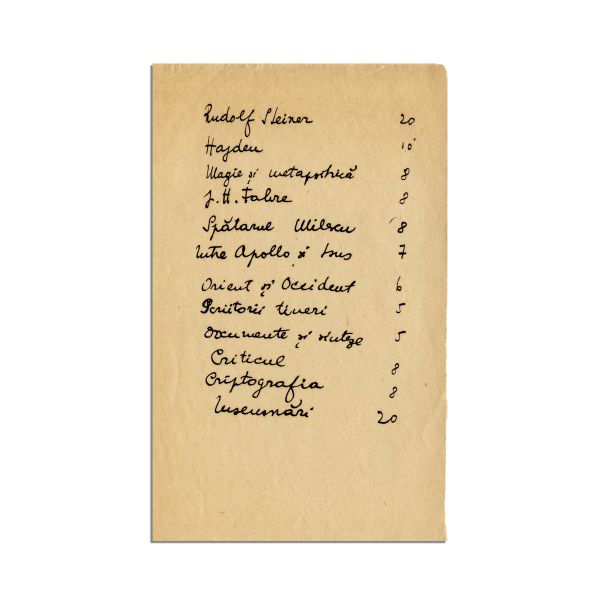 Rudolf Steiner 20
Hajdeu 10
Magie și metapsihică 8
J. H. Fabre 8
Spătarul Milescu 8
Între Apollo și Isus 7
Orient și Occident 6
Scriitorii tineri 5
Documente și sinteze 5
Criticul 8
Criptografia 8
Însemnări 20